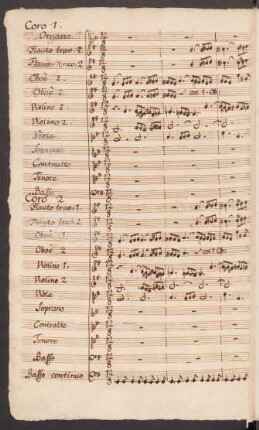 Coro 1.
Organo
Flauto trav. 1
Flauto trav. 2
Oboe 1
Oboe 2
Violino 1
Violino 2
Viola
Soprano
Contralto
Tenore
Basso
Coro 2
Flauto trav. 1
Flauto trav. 2
Oboe 1
Oboe 2
Violino 1.
Violino 2
Viola
Soprano
Contralto
Tenore
Basso
Basso continuo